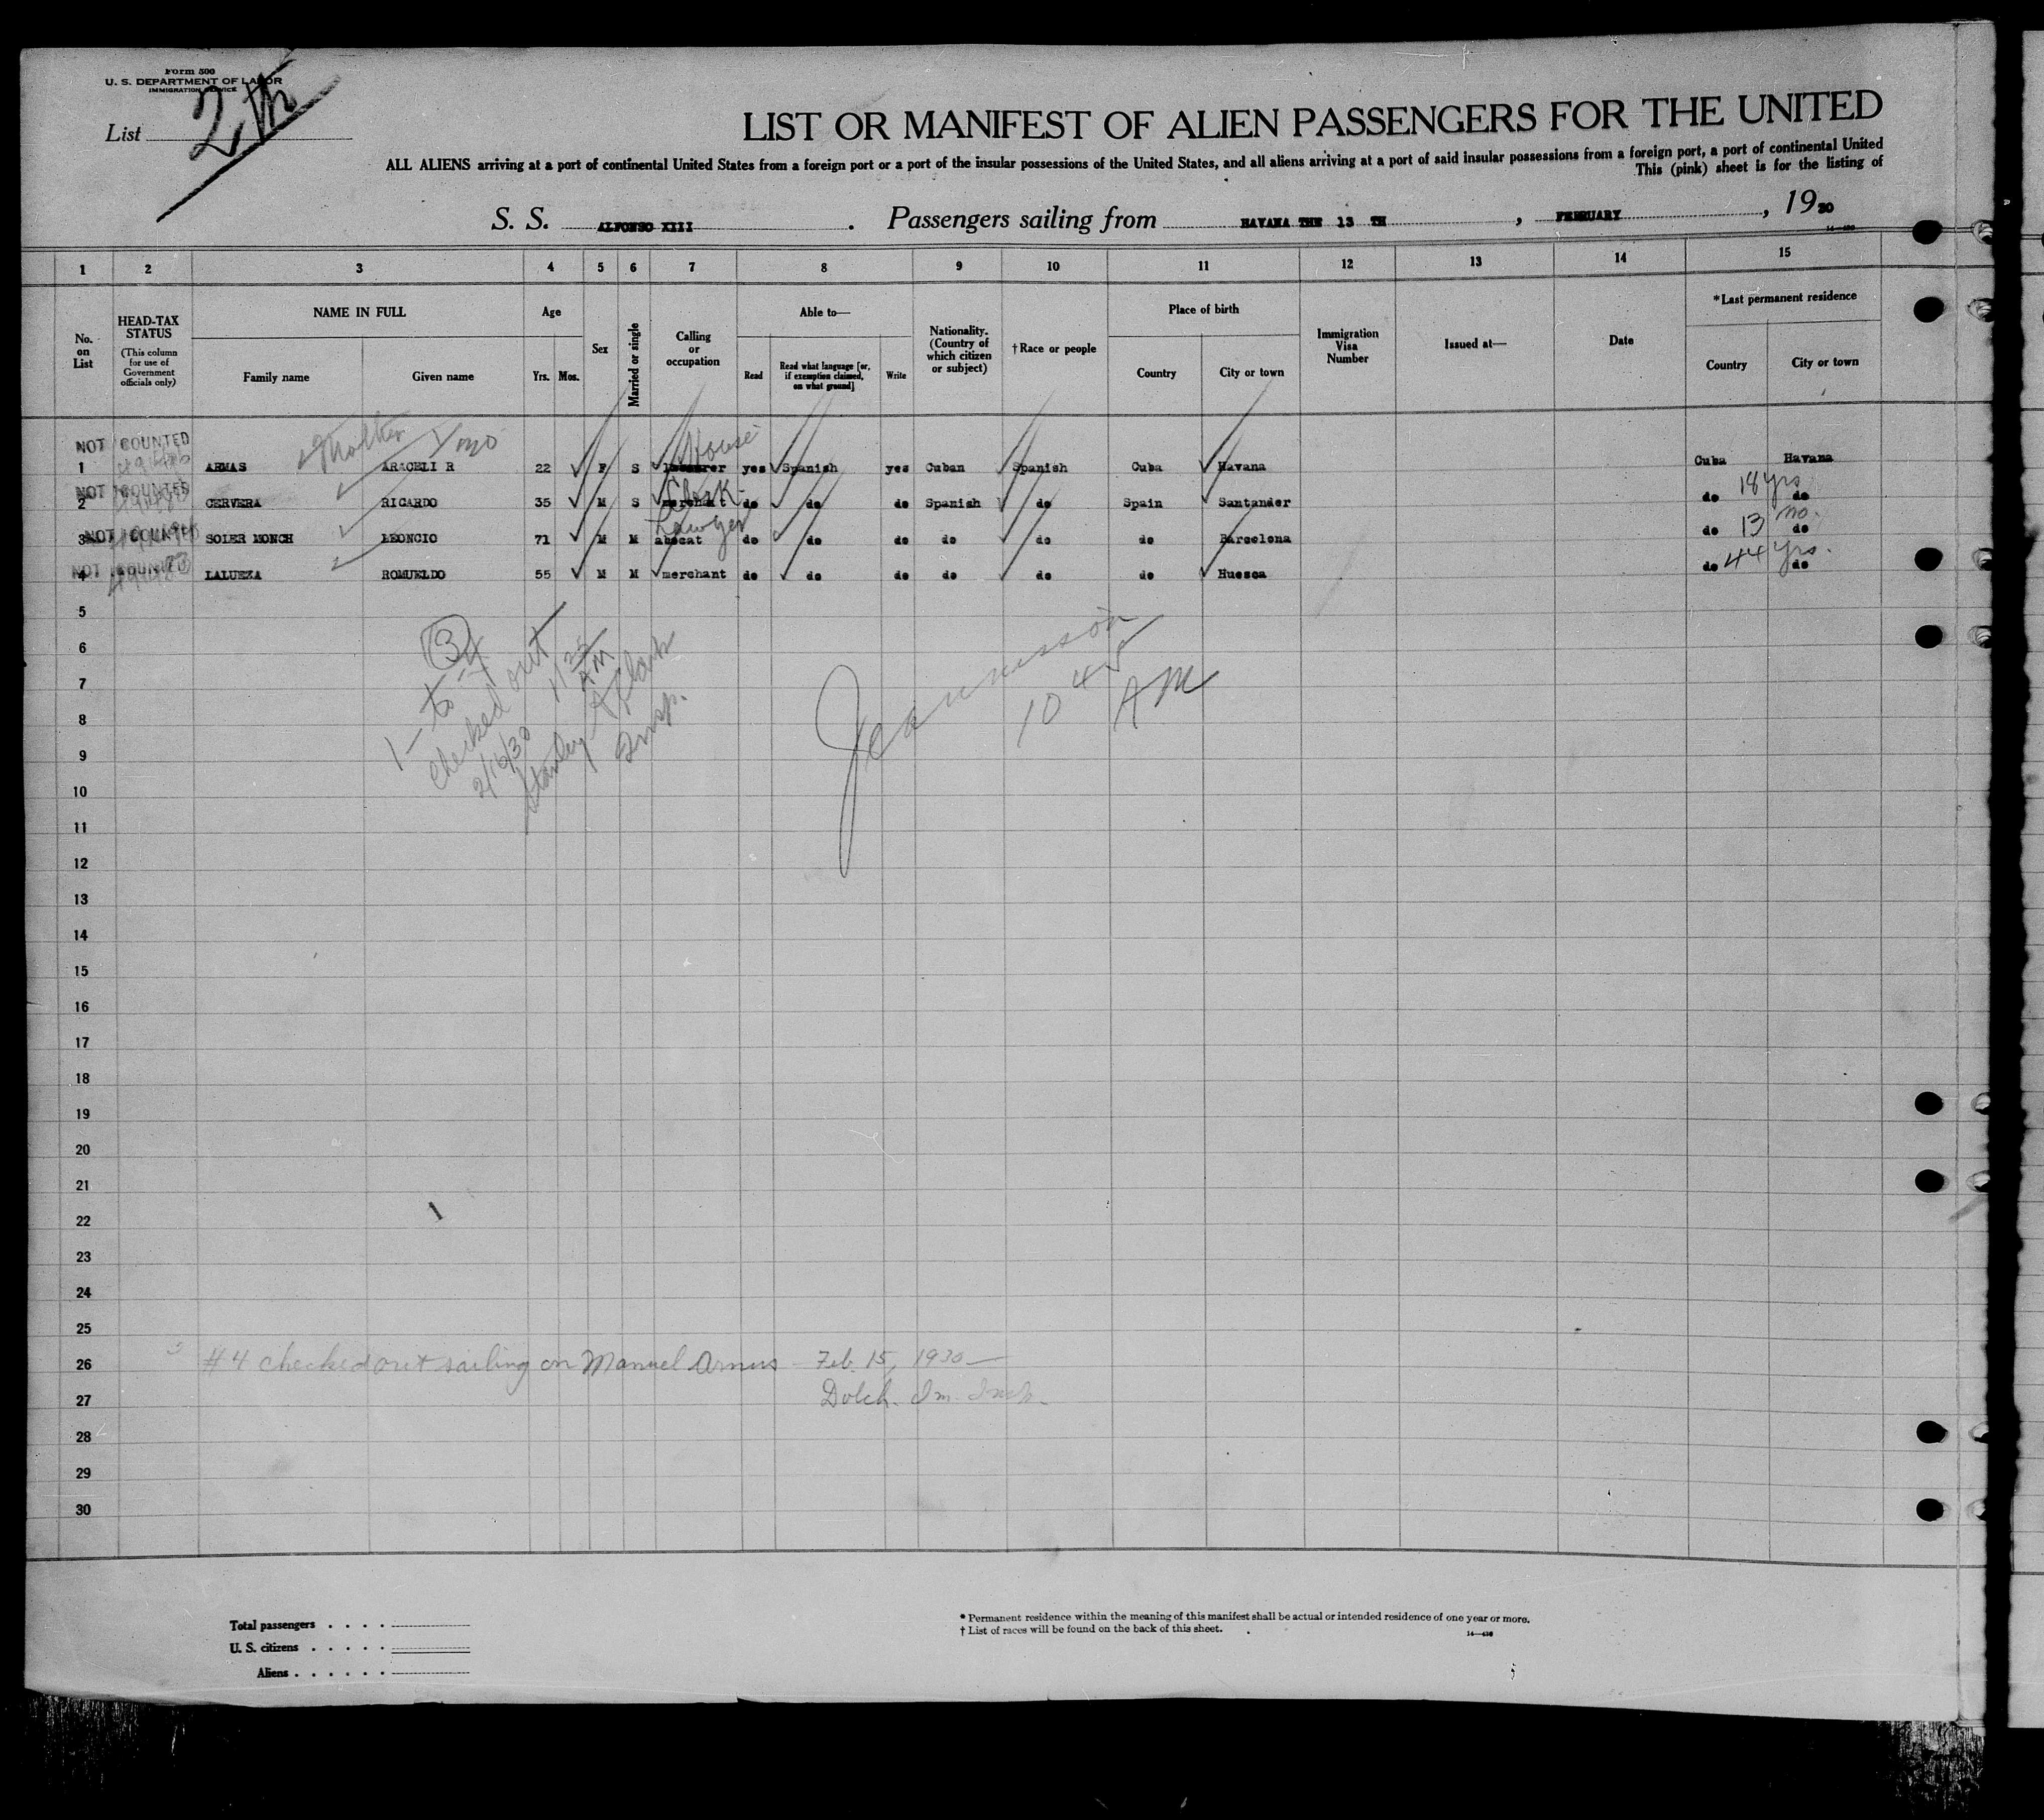 Form 500
U. S. DEPARTMENT OF LABOR
IMMIGRATION SERVICE
List 2th
LIST OR MANIFEST OF ALIEN PASSENGERS FOR THE UNITED
ALL ALIENS arriving at a port of continental United States from a foreign port or a port of the insular possessions of the United States, and all aliens arriving at a port of said insular possessions from a foreign port, a port of continental United
This (pink) sheet is for the listing of
S. S. ALFONSO XIII . Passengers sailing from HAVANA THE 13 TH , FEBRUARY , 1930
1 2 3 4 5 6 7 8 9 10 11 12 13 14 15
No. on List
HEAD-TAX STATUS (This column for use of Government officials only)
NAME IN FULL
Family name Given name
Age
Yrs. Mos.
Sex
Married or single
Calling or occupation
Able to—
Read
Read what language [or, if exemption claimed, on what ground]
Write
Nationality. (Country of which citizen or subject)
†Race or people
Place of birth
Country City or town
Immigration Visa Number
Issued at—
Date
*Last permanent residence
Country City or town
NOT COUNTED House
1 ARMAS ARACELI R 22 F S yes Spanish yes Cuban Spanish Cuba Havana Cuba Havana
NOT COUNTED Clerk 18 yrs
2 CERVERA RICARDO 35 M S merchant do do do Spanish do Spain Santander do do
NOT COUNTED Lawyer 13 mo.
3 SOLER MONCH LEONCIO 71 M M abocat do do do do do do Barcelona do do
NOT COUNTED 44 yrs.
4 LALUEZA ROMUELDO 55 M M merchant do do do do do do Huesca do do
5
6
7
8
9
10
11
12
13
14
15
16
17
18
19
20
21
22
23
24
25
26
27
28
29
30
3
1 - to 4
checked out
2/16/30 11 25 AM
Stanley
Insp.
10 45 AM
#4 checked out sailing on Manuel Arnus Feb. 15, 1930
Dolch. Im. Insp.
Total passengers . . . .
U. S. citizens . . . . .
Aliens . . . . . .
* Permanent residence within the meaning of this manifest shall be actual or intended residence of one year or more.
† List of races will be found on the back of this sheet.
14—430